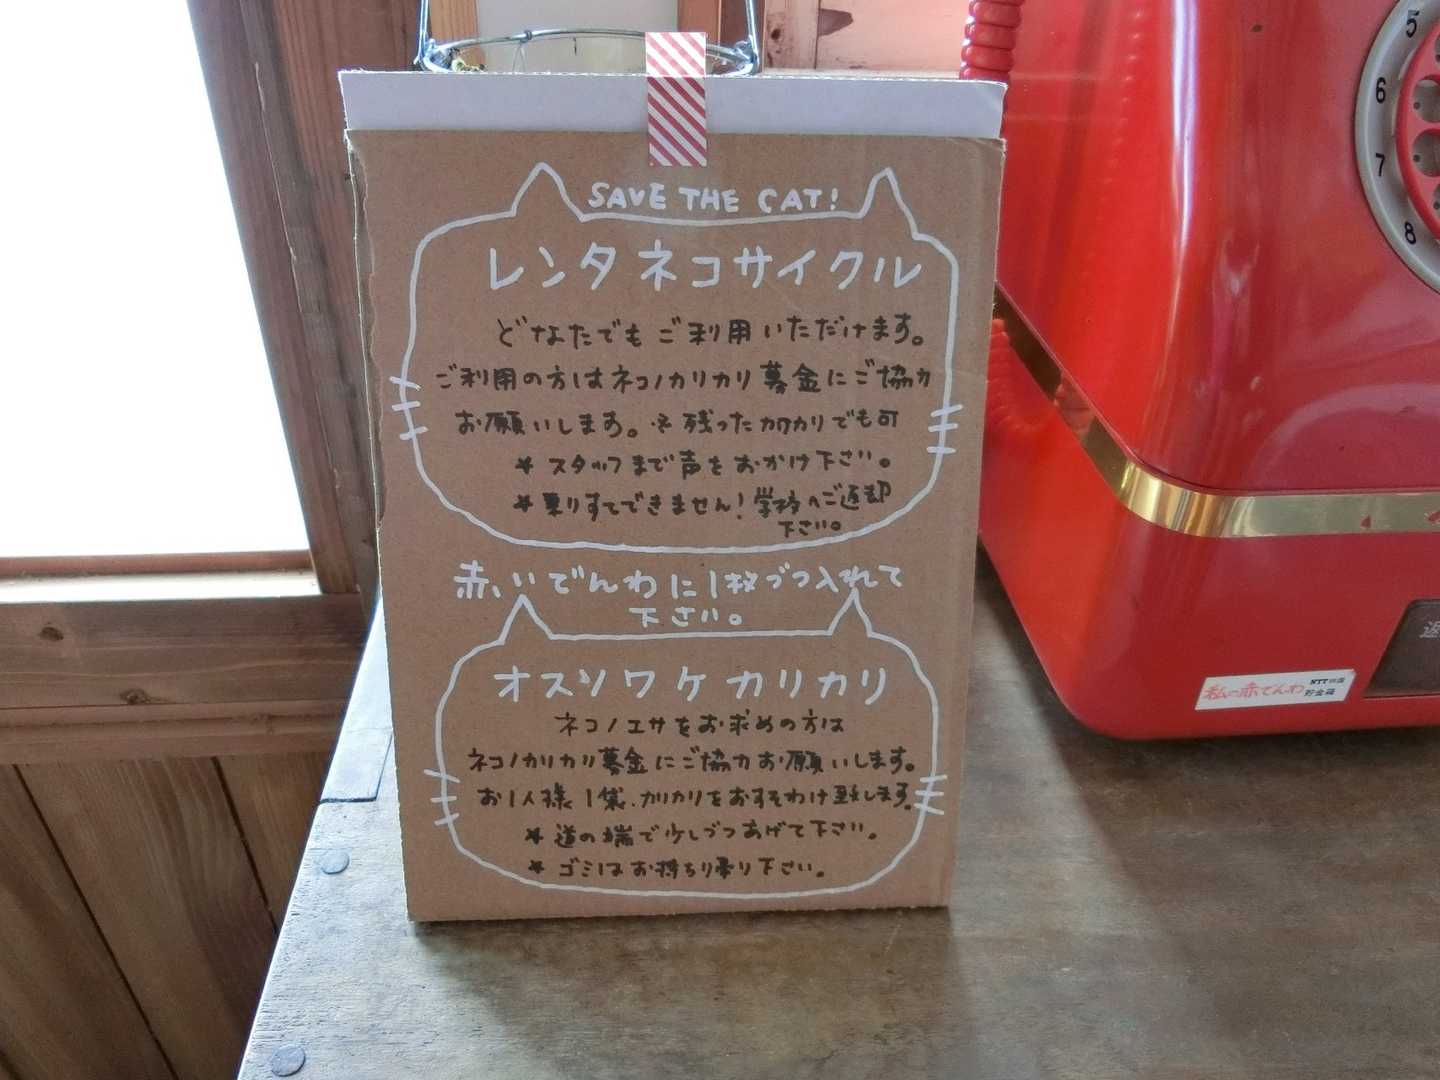 SAVE THE CAT!
レンタネコサイクル
どなたでもご利用いただけます。
ご利用の方はネコノカリカリ募金にご協力
お願いします。※残ったカリカリでも可
* スタッフまで声をおかけ下さい。
* 乗りすてできません!学校へご返却
下さい。
赤いでんわに1枚づつ入れて
下さい。
オスソワケカリカリ
ネコノエサをお求めの方は
ネコノカリカリ募金にご協力お願いします。
お1人様1袋、カリカリをおすそわけ致します。
* 道の端で少しづつあげて下さい。
* ゴミはお持ち帰り下さい。
5
6
7
8
返
私の赤でんわ NTT 貯金箱